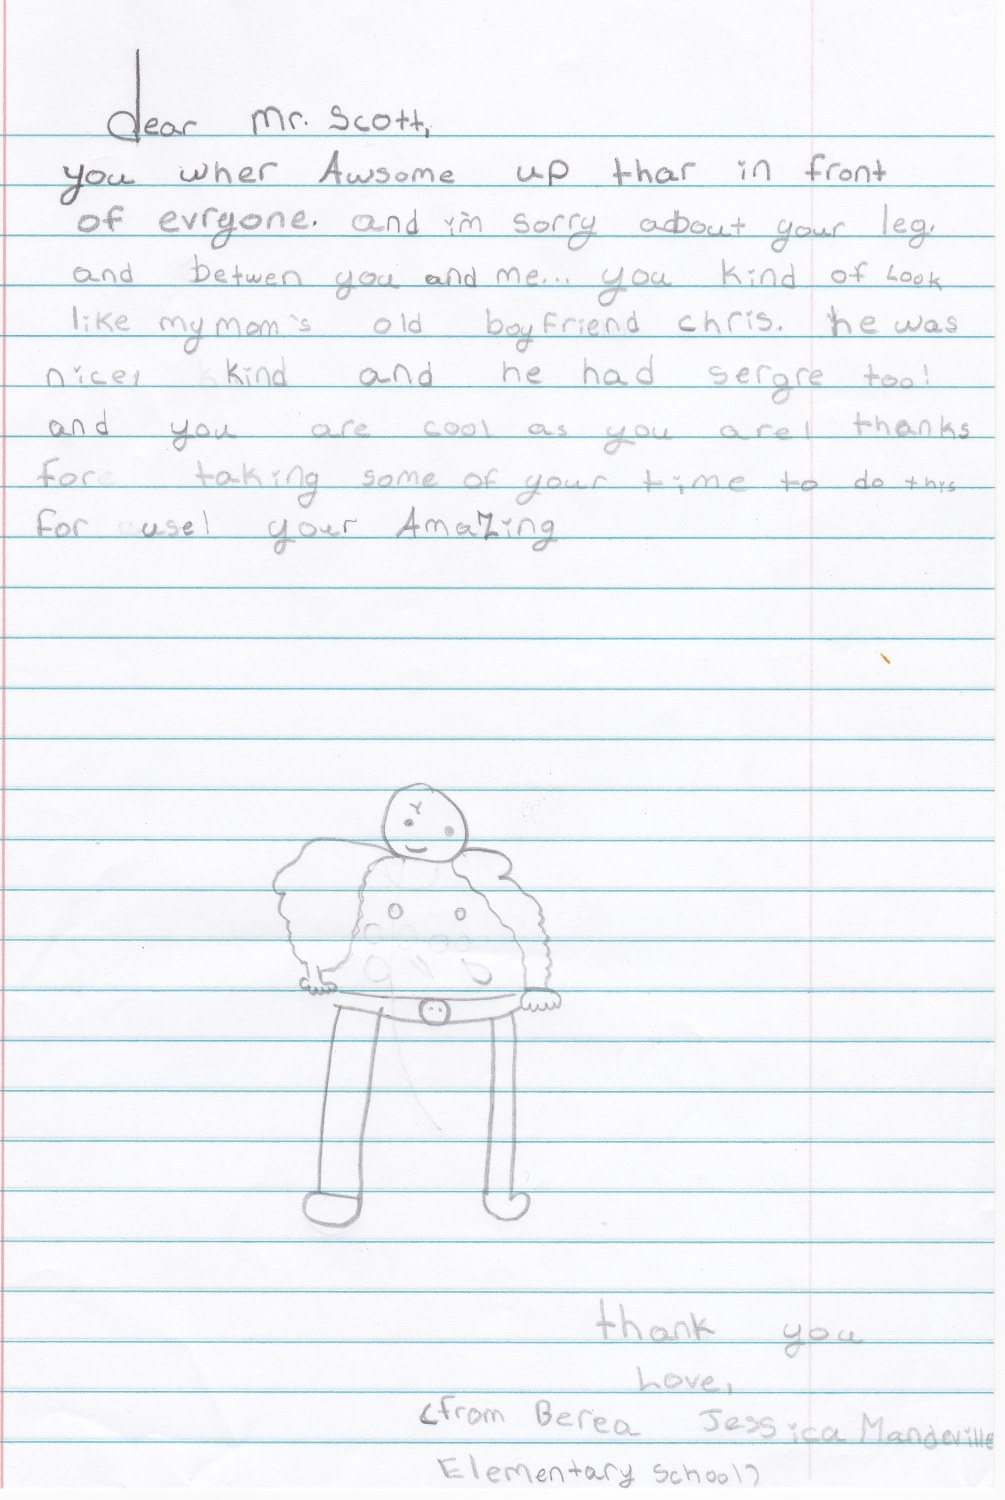 dear Mr. Scott,
you wher Awsome up thar in front
of evryone. and i'm sorry about your leg.
and betwen you and me... you kind of Look
like my mom's old boyfriend chris. he was
nice, kind and he had sergre too!
and you are cool as you are! thanks
for taking some of your time to do this
for use! your AmaZing
thank you
Love,
(from Berea Jessica Mandeville
Elementary School)